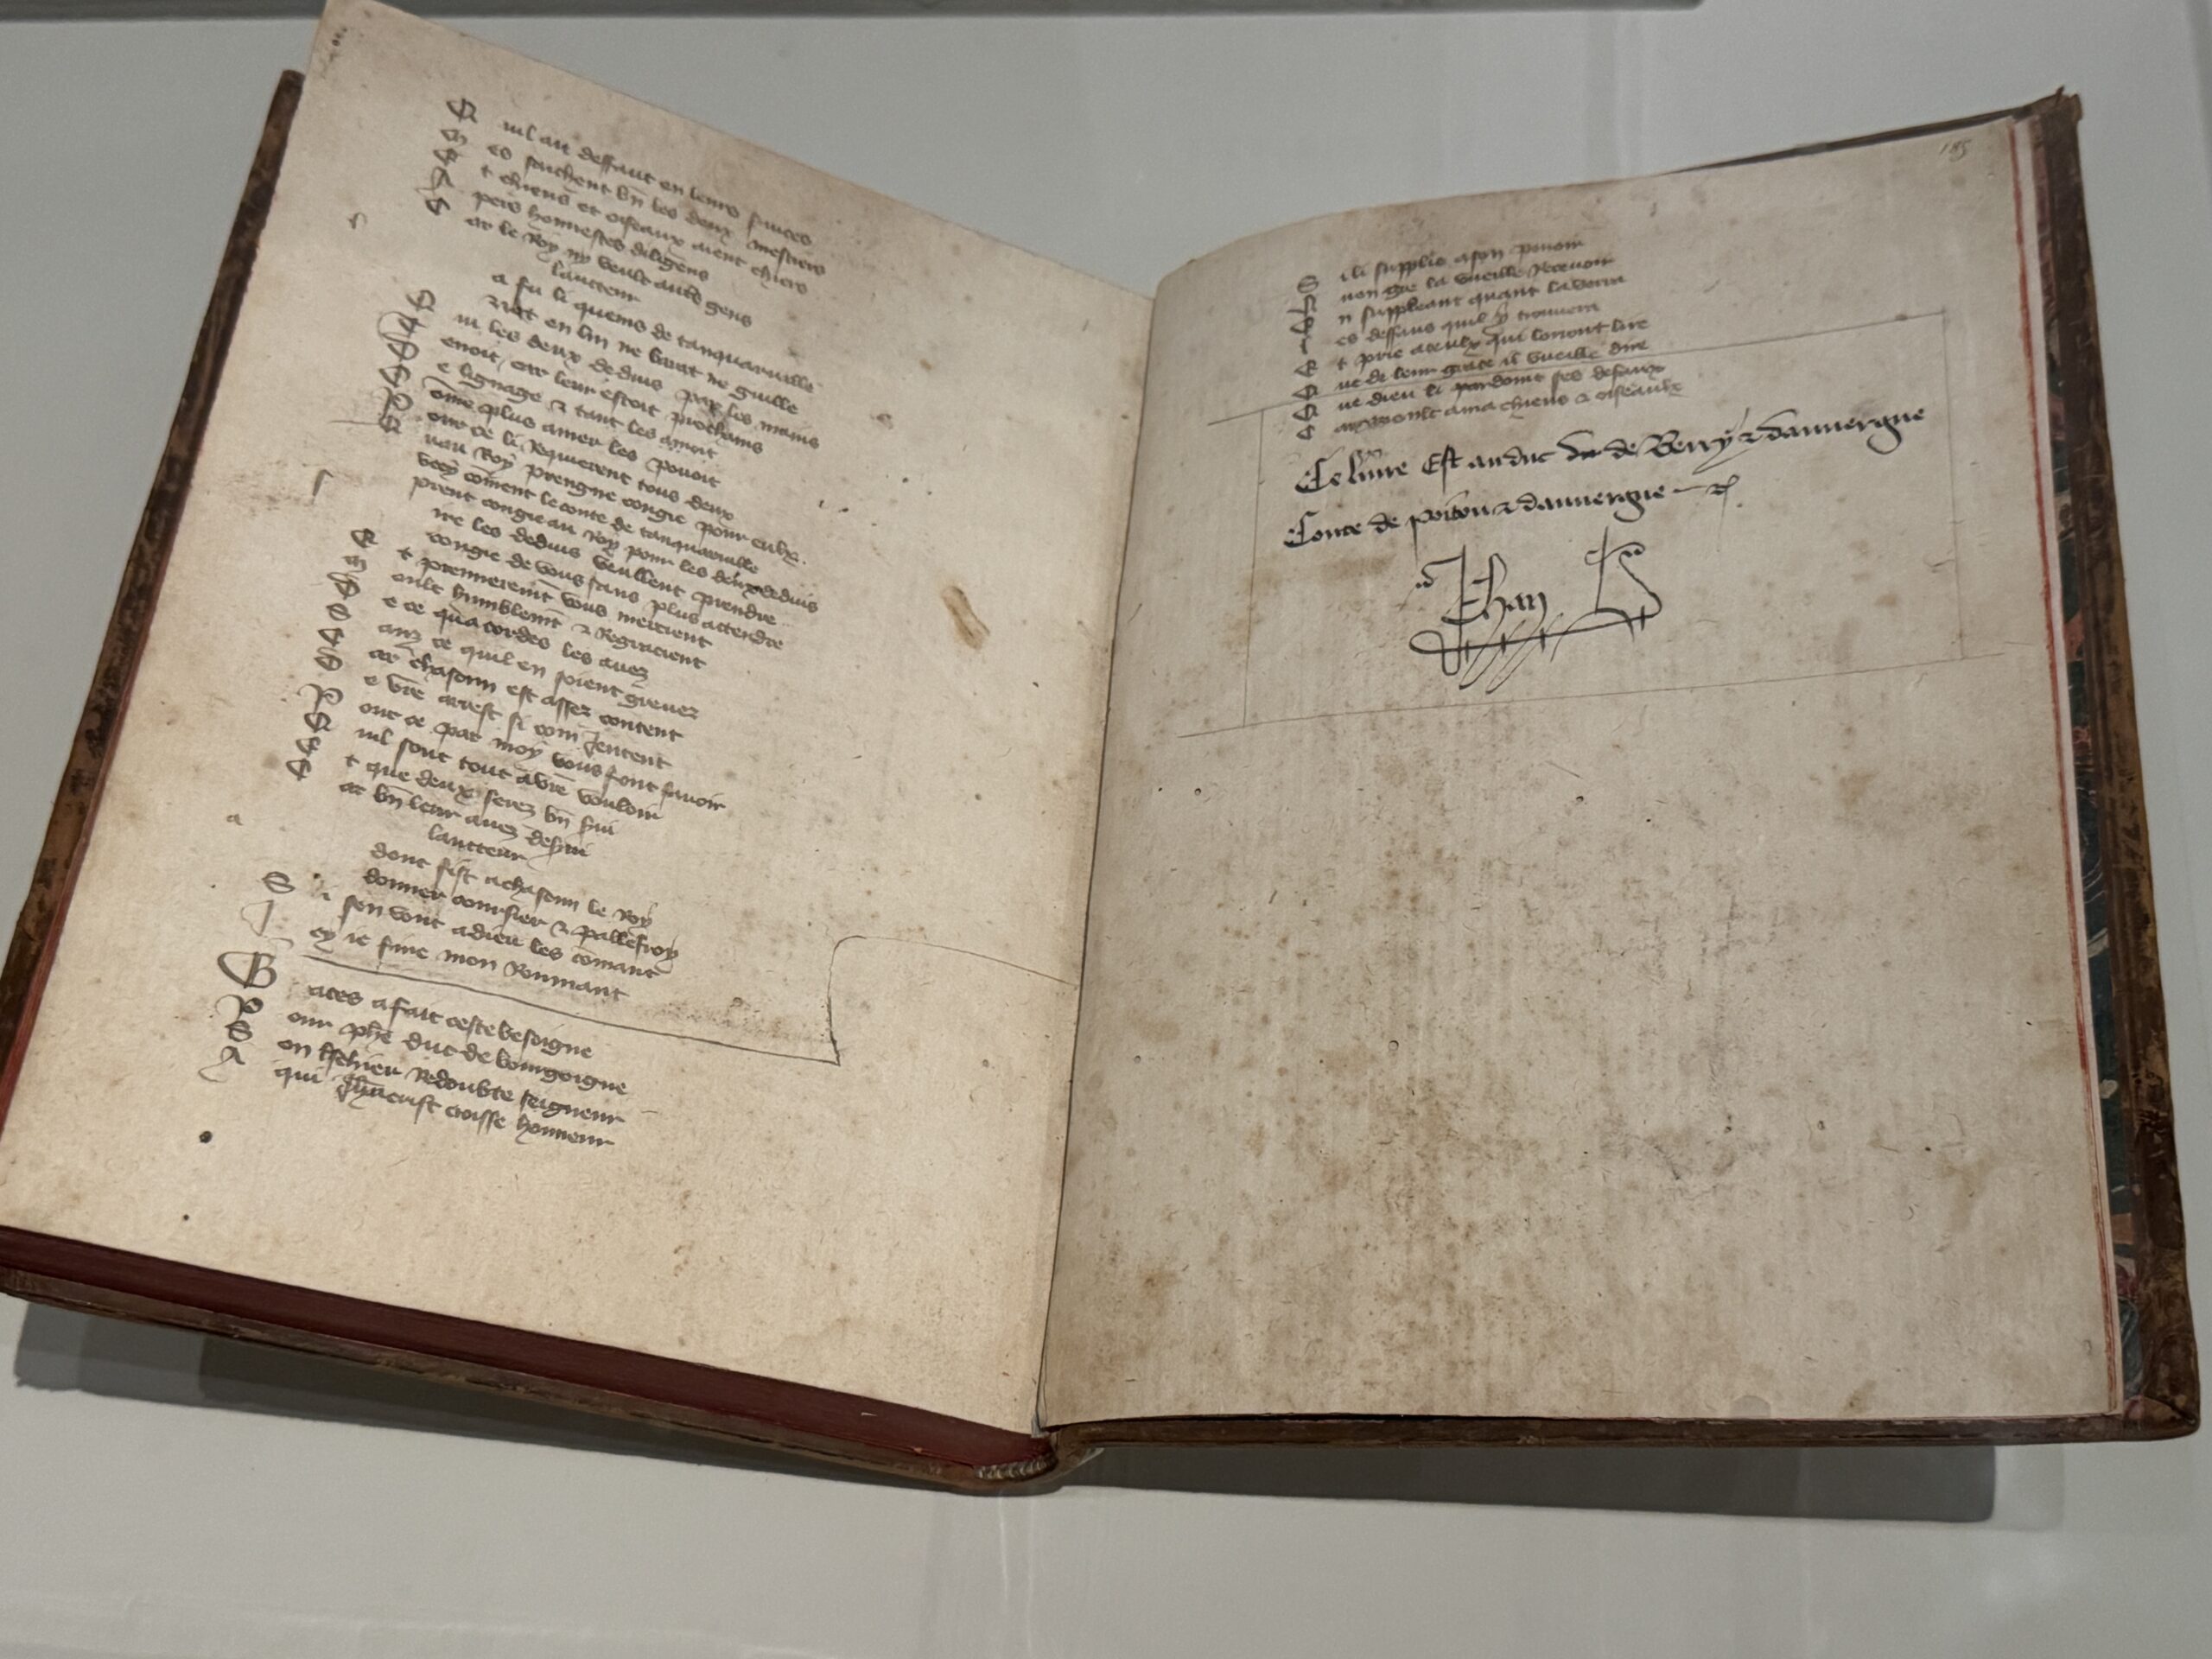 Q uil ait deffaut en leurs services
M es sachent bn les deux mestiers
E t chiens et oiseaux aient chiers
A pers honnestes diligens
C ar le Roy ny veult autres gens
lauteur
a fu li quens de tanquarville
n ot en lui ne barat ne guille
Q ui les deux deduis par les mains
T enoit, car leur estoit prochains
D e lignage & tant les amoit
C õme plus amer les pouoit
P our ce li Requierent tous deux
Q uau Roy prengne congie pour eulx.
vecy cõment le conte de tanquarville
prent congie au Roy pour les deux deduis
ire les deduis veullent prendre
congie de vous sans plus attendre
E t premierem̃t vous mercient
M oult humblem̃t & Regracient
D e ce qua cordes les avez
S anz ce quil en soient grevez
C ar chascun est assez content
D e vr̃e arrest si com jentent
P our ce par moy vous font savoir
Q uil sont tout a vr̃e vouloir
E t que deux serez bn̄ servi
C ar bn̄ leur avez desservi
lautteur
dont fist a chascun le Roy
donner coursier & pallefroy
S i sen vont a dieu les cõmant
J cy ie fine mon Roumant
G aces a fait ceste besoigne
P our phẽ duc de bourgoigne
S on tschier Redoubte seigneur
A qui Jhũcrist croisse honneur
185
S i li supplie a son pouoir
Q uen gre la vueille Recevoir
E n suppleant quant la verra
L es deffaus quil y trouvera
E t prie a ceulx qui lorront lire
Q ue de leur grace il vueille dire
Q ue dieu li pardoint ses defaux
C ar moult ama chiens & oiseaulx
Ce livre Est au duc de Berry & dauvergne
Conte de poitou & dauvergne
Jehan B